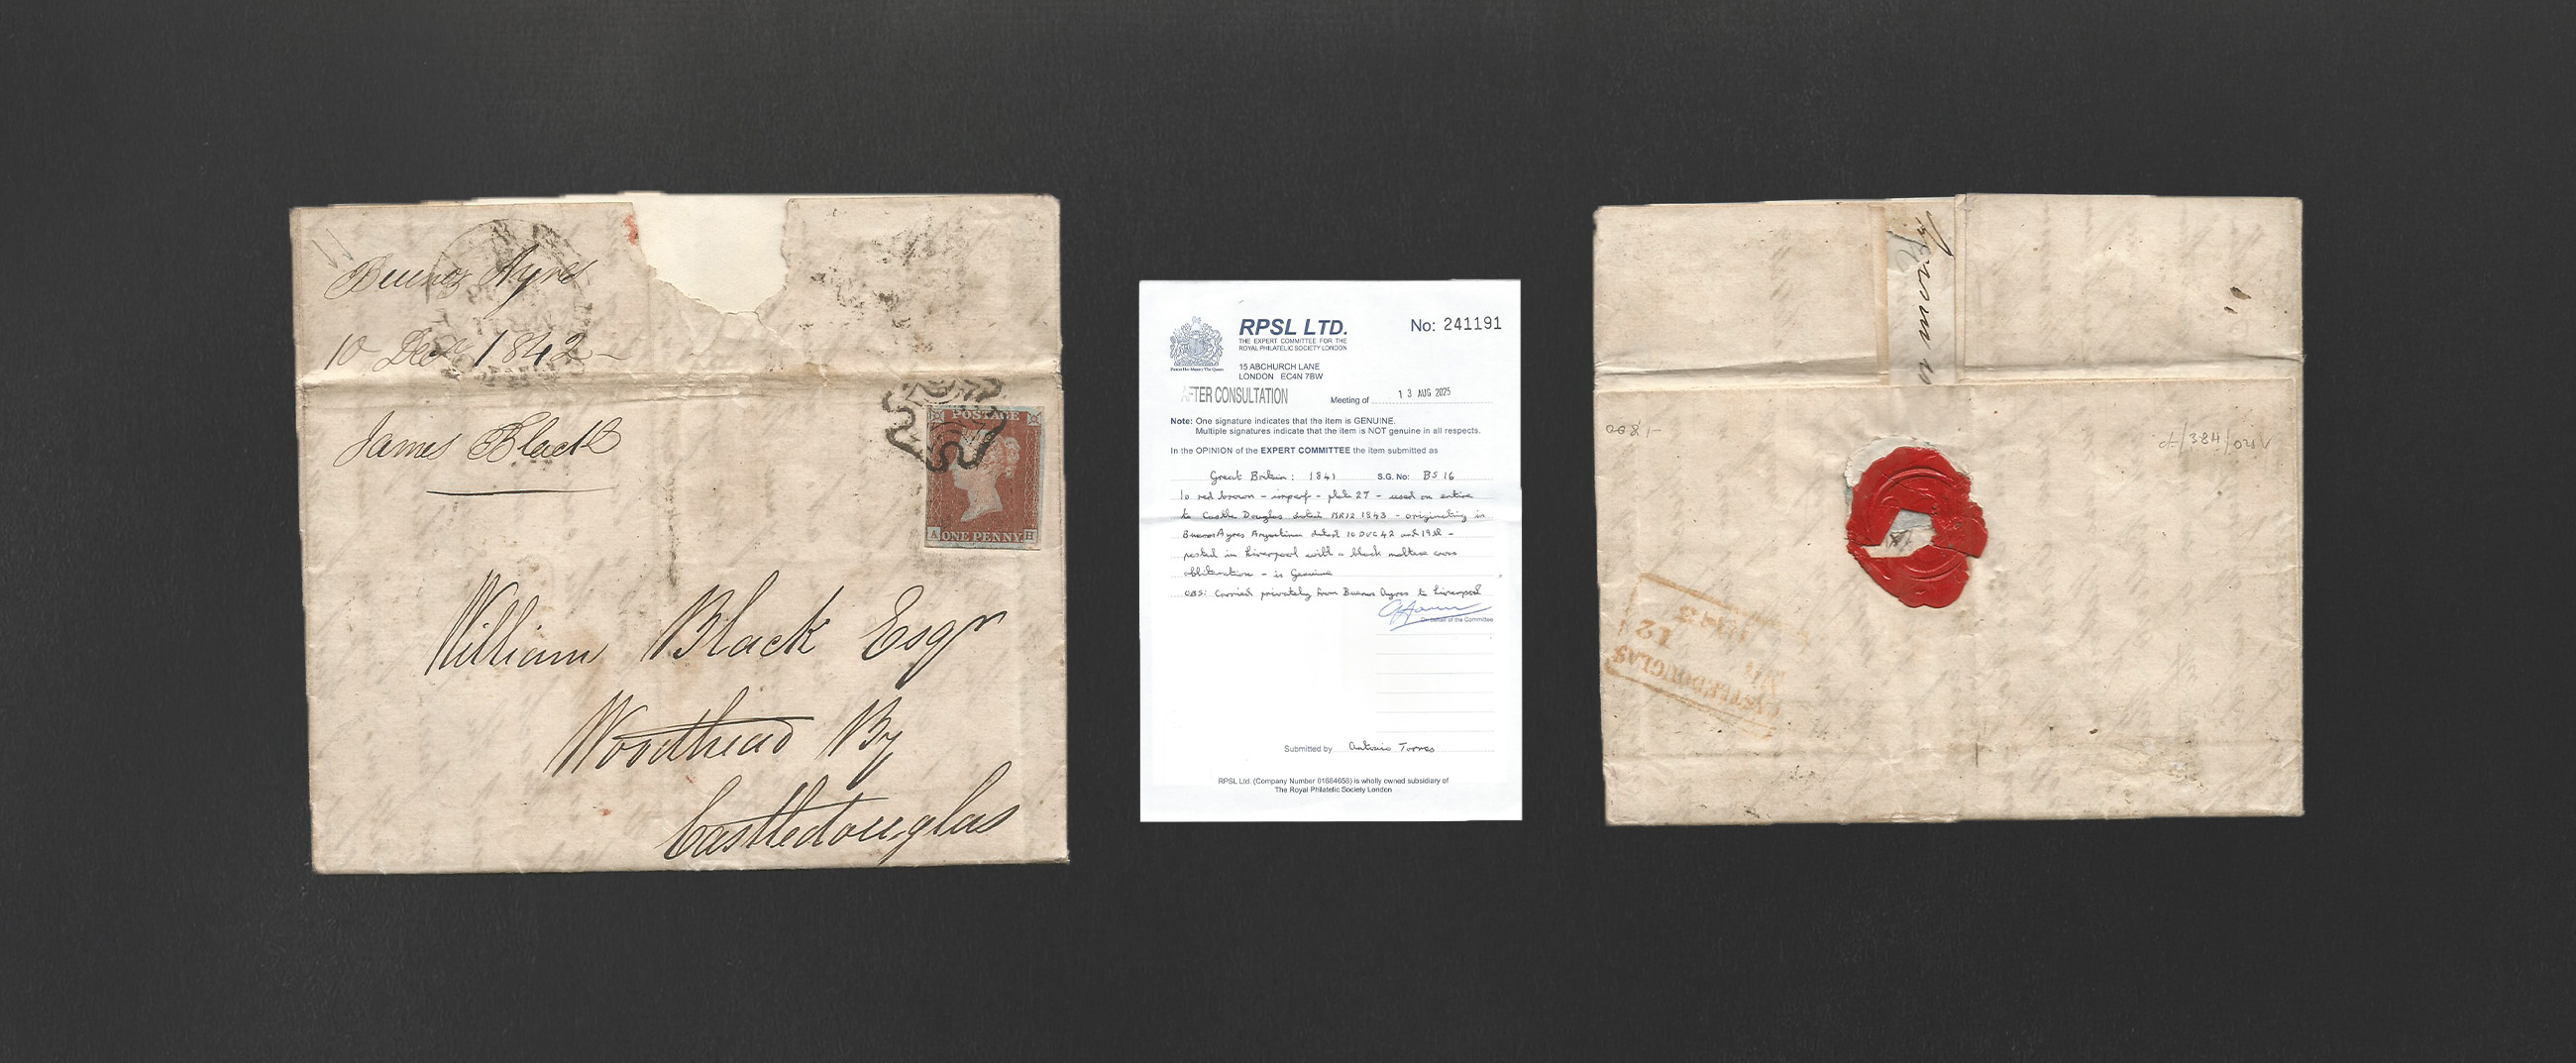 Buenos Ayres
10 Decr 1842
James Black
POSTAGE
A ONE PENNY H
William Black Esqr
Woodhead By
Castledouglas
RPSL LTD.
THE EXPERT COMMITTEE FOR THE
ROYAL PHILATELIC SOCIETY LONDON
No: 241191
15 ABCHURCH LANE
LONDON EC4N 7BW
AFTER CONSULTATION
Meeting of 13 AUG 2025
Note: One signature indicates that the item is GENUINE.
Multiple signatures indicate that the item is NOT genuine in all respects.
In the OPINION of the EXPERT COMMITTEE the item submitted as
Great Britain: 1841 S.G. No: BS 16
1d red brown - imperf - plate 27 - used on entire
to Castle Douglas dated MR12 1843 - originating in
Buenos Ayres Argentina dated 10 DEC 42 and 19th -
posted in Liverpool with a black maltese cross
obliteration - is Genuine
OBS: Carried privately from Buenos Ayres to Liverpool
On behalf of the Committee
Submitted by Antonio Torres
RPSL Ltd. (Company Number 01684656) is wholly owned subsidiary of
The Royal Philatelic Society London
CASTLE DOUGLAS
12
1843